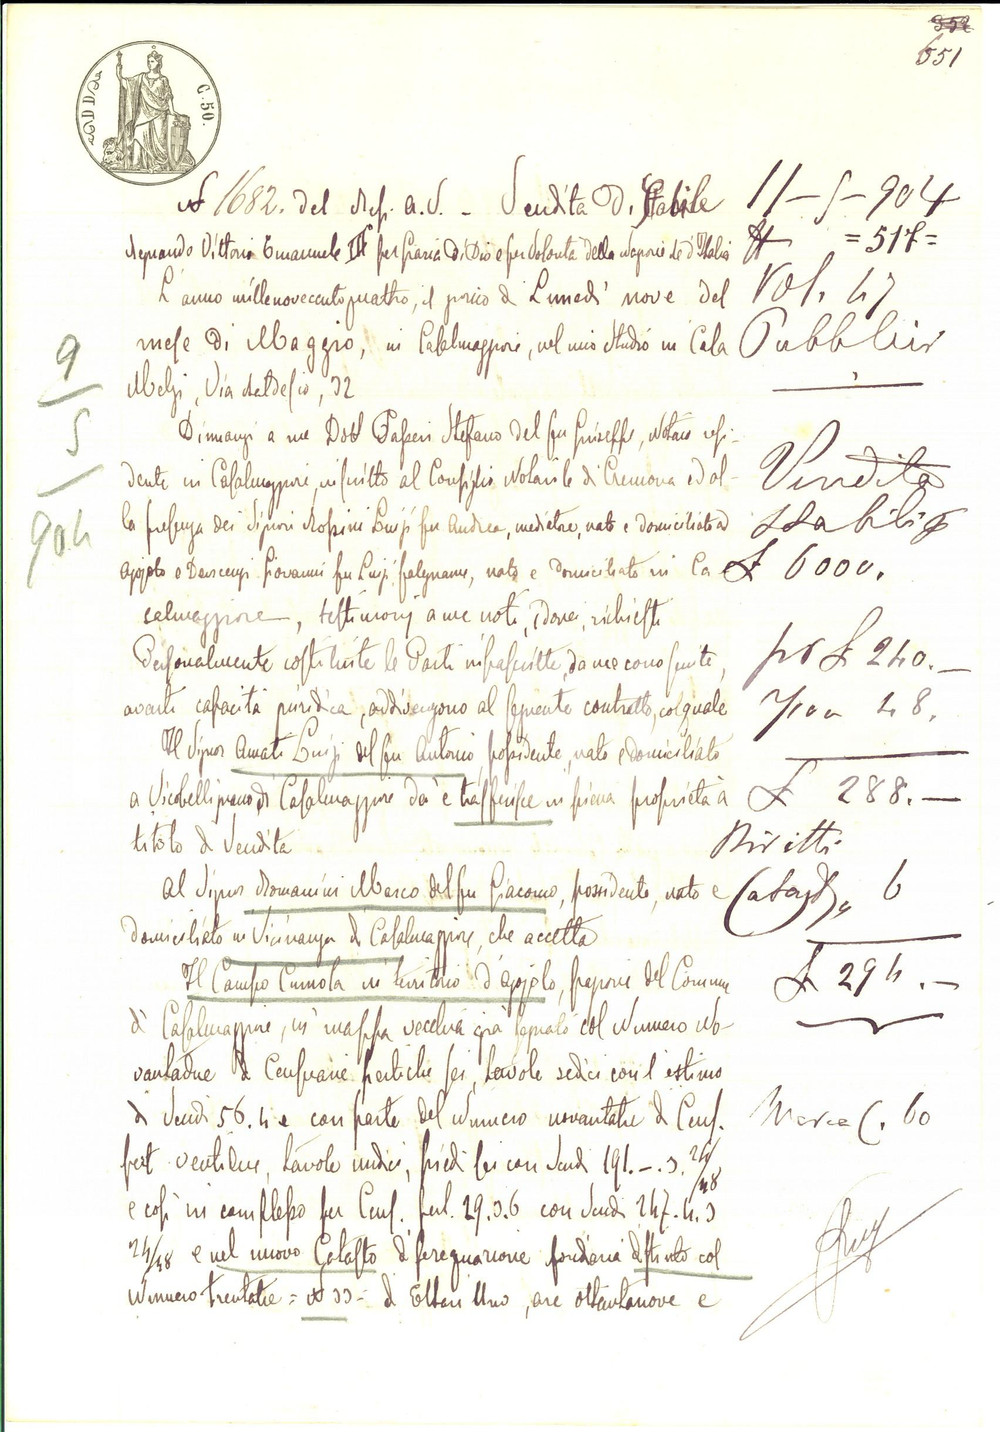 651
C. 50.
N 1682. del Rep. a.s. - Vendita di Stabile
Regnando Vittorio Emanuele III per grazia di Dio e per volontà della Nazione Re d'Italia
L'anno millenovecentoquattro, il giorno di Lunedì nove del
mese di Maggio, in Casalmaggiore, nel mio Studio in Casa
Melzi, Via Baldesio, 32
Dinnanzi a me Dott Passeri Stefano del fu Giuseppe, Notaro resi-
dente in Casalmaggiore, inscritto al Consiglio Notarile di Cremona ed al-
la presenza dei Signori Rossini Luigi fu Andrea, mediatore, nato e domiciliato ad
e Giovanni fu Luigi falegname, nato e domiciliato in Ca
salmaggiore, testimonj a me noti, idonei, richiesti
Personalmente costituite le Parti infrascritte, da me conosciute,
aventi capacità giuridica, addivengono al seguente contratto, col quale
Il Signor Amati Luigi del fu Antonio possidente, nato e domiciliato
a Vicobellignano di Casalmaggiore dà e trasferisce in piena proprietà a
titolo di Vendita
Al Signor Romanini Marco del fu Giacomo, possidente, nato e
domiciliato in Vicinanza di Casalmaggiore, che accetta
Il Campo in territorio d' frazione del Comune
di Casalmaggiore, in mappa vecchia già segnato col Numero No-
vantadue di Censuarie pertiche sei, tavole sedici con l'estimo
di Scudi 56. 4 e con parte del Numero novantatre di Cens.
pert ventidue, tavole undici, piedi sei con Scudi 191. -. 3. 24/48
e così in complesso per Cens. pert. 29. 3. 6 con Scudi 247. 4. 3
24/48 e nel nuovo Catasto di perequazione fondiaria distinto col
Numero trentatre = N 33 = di Ettari Uno, are ottantanove e
9
5
904
11-5-904
N =517=
Vol. 47
Pubblici
Vendita
stabili
£ 6000.
pr £ 240.-
48.
£ 288.-
Diritti
Catasto, 6
£ 294.-
Marca C. 60